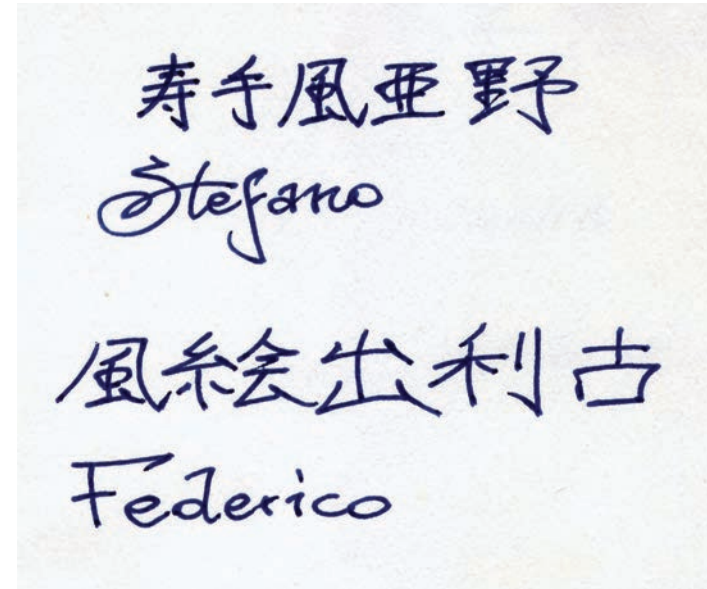 寿手風亜野
Stefano
風絵出利古
Federico